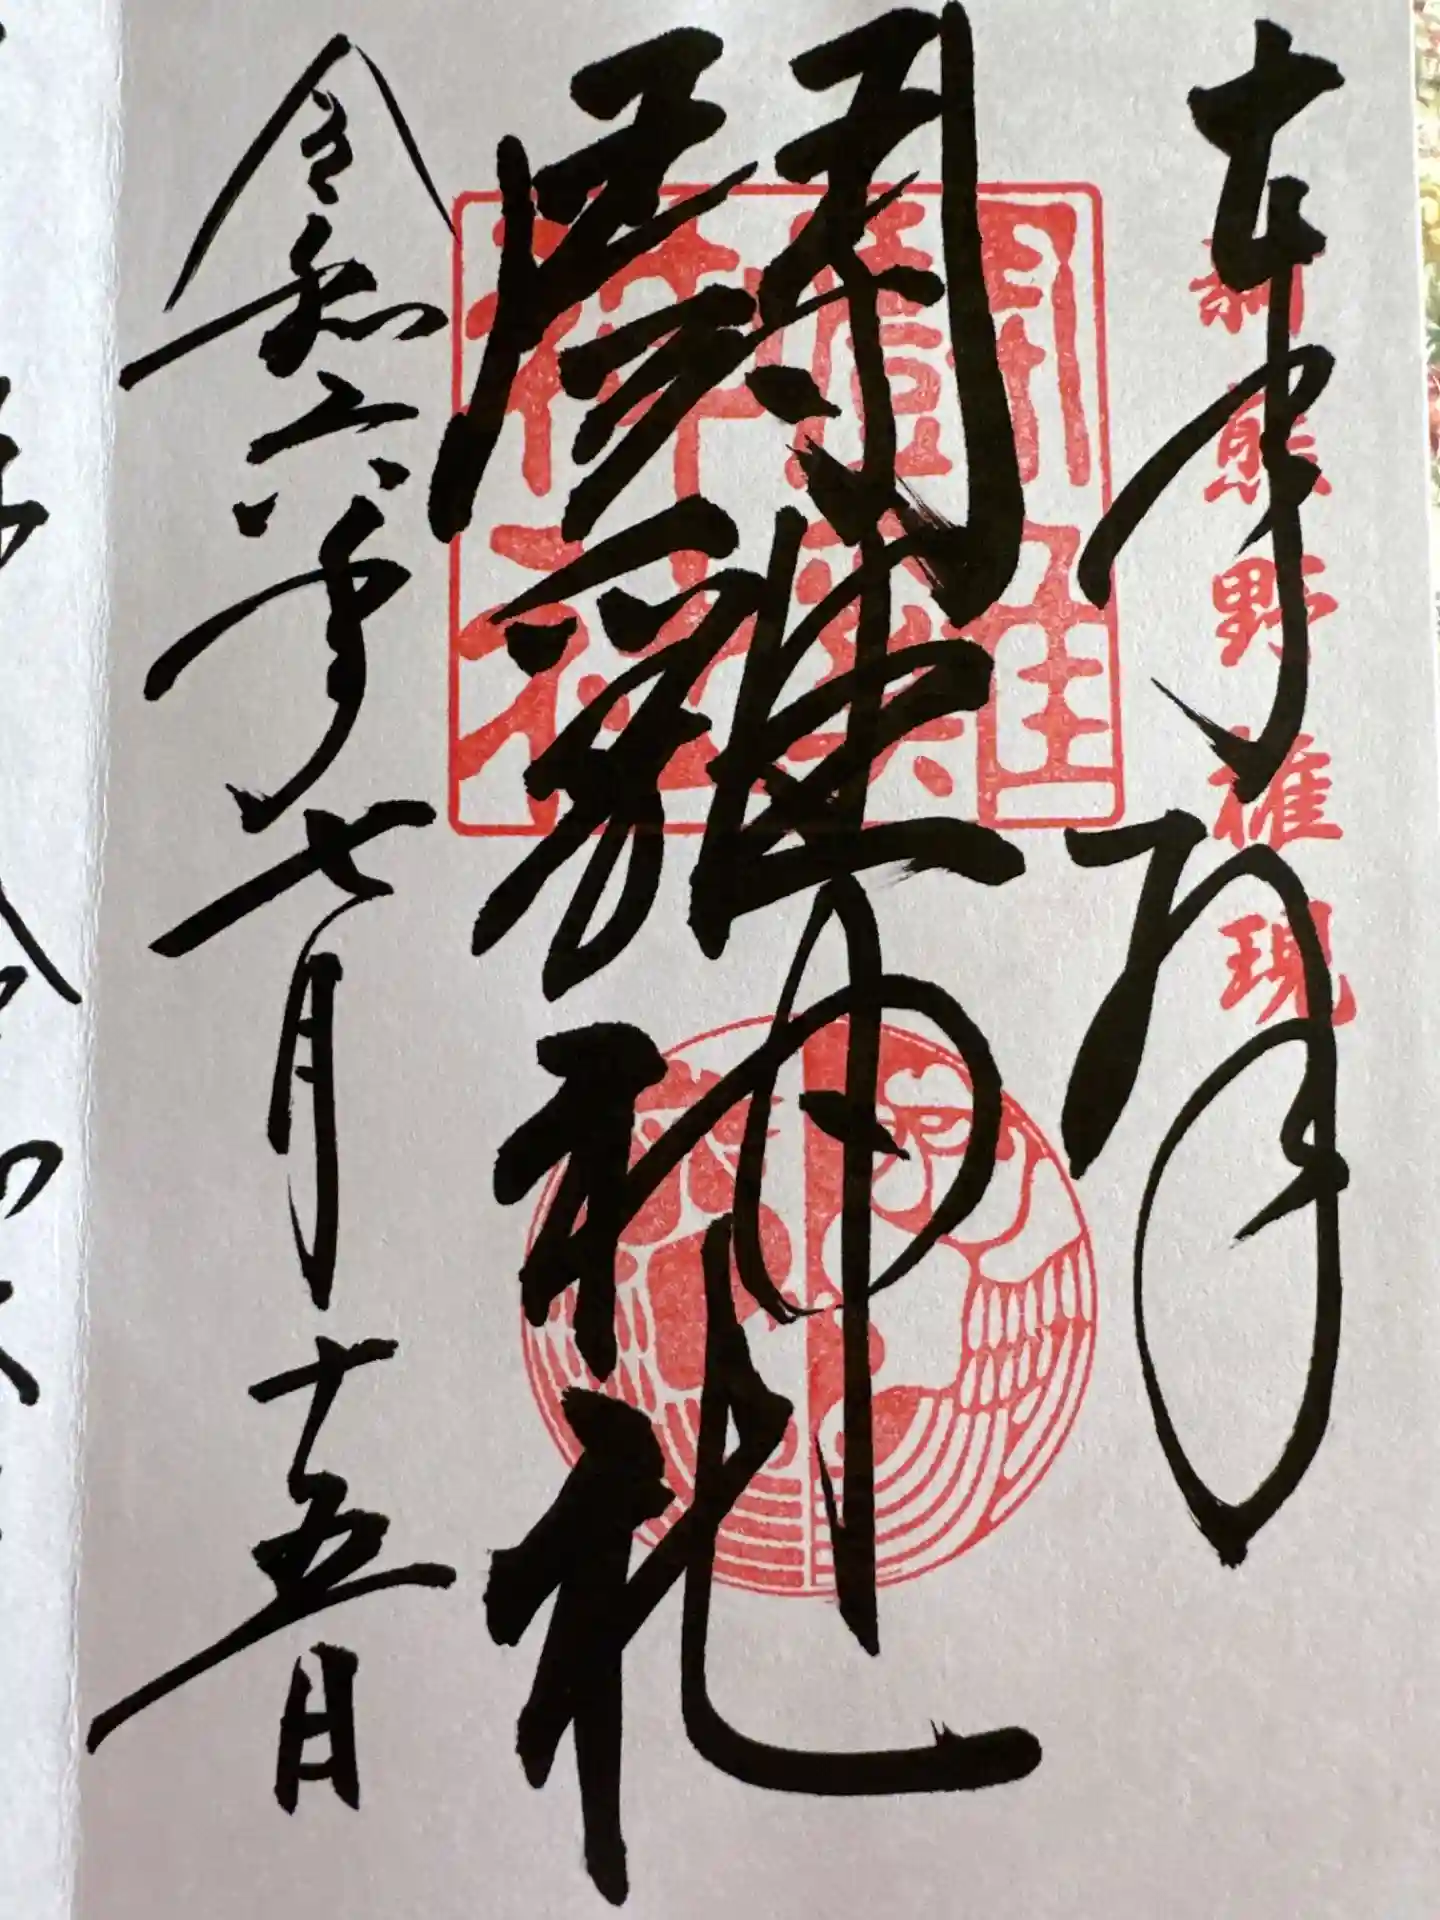 奉拝
新熊野権現
鬪雞神社
鬪雞神社
令和六年七月十五日